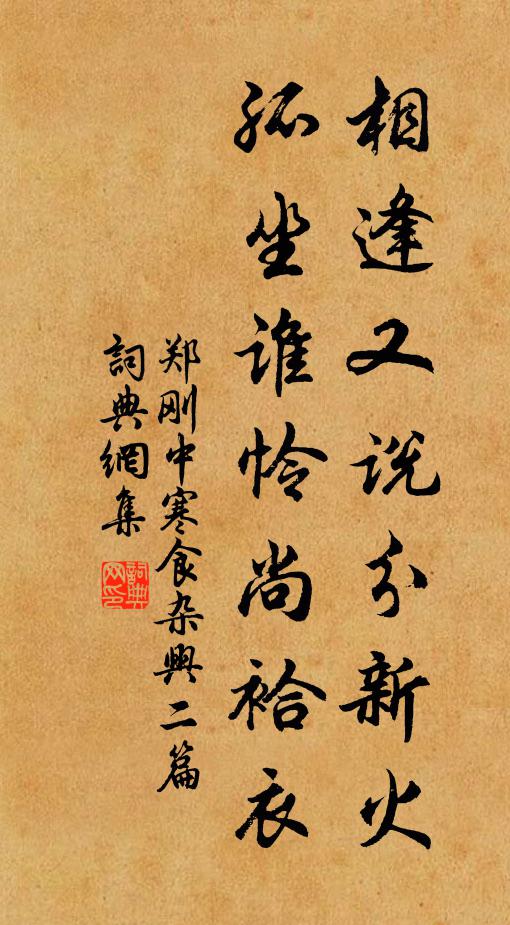 相逢又说分新火
孤坐谁怜尚袷衣
郑刚中寒食杂興二篇
詞典網集
詞典网印